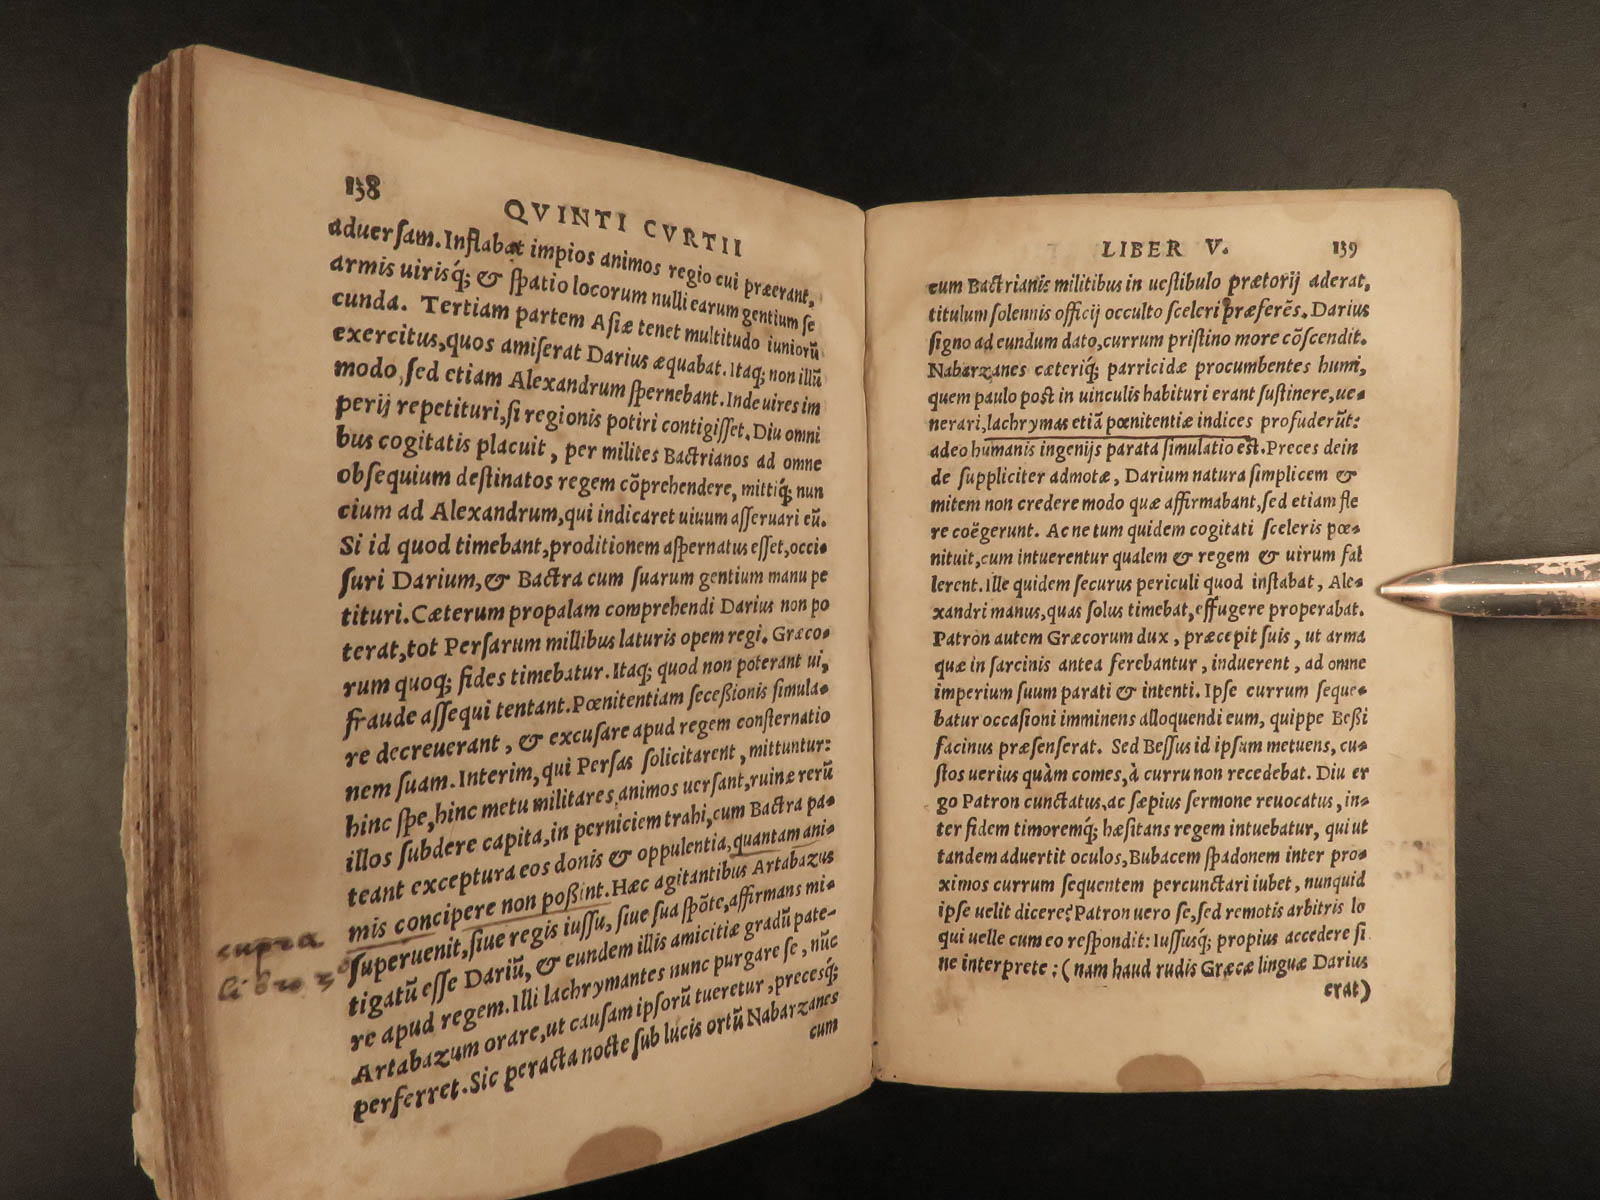 138
QVINTI CVRTII
aduerſam. Inflabat impios animos regio cui præerant,
armis uirisq́; & ſpatio locorum nulli earum gentium ſe
cunda. Tertiam partem Aſiæ tenet multitudo iuniorũ
exercitus, quos amiſerat Darius æquabat. Itaq; non illũ
modo, ſed etiam Alexandrum ſpernebant. Inde uires im
perij repetituri, ſi regionis potiri contigiſſet. Diu omni
bus cogitatis placuit, per milites Bactrianos ad omne
obſequium deſtinatos regem cõprehendere, mittiq́; nun
cium ad Alexandrum, qui indicaret uiuum aſſeruari eũ.
Si id quod timebant, proditionem aſpernatus eſſet, occi-
ſuri Darium, & Bactra cum ſuarum gentium manu pe
tituri. Cæterum propalam comprehendi Darius non po
terat, tot Perſarum millibus laturis opem regi. Græco-
rum quoq; fides timebatur. Itaq; quod non poterant ui,
fraude aſſequi tentant. Pœnitentiam ſeceßionis ſimula-
re decreuerant, & excuſare apud regem conſternatio
nem ſuam. Interim, qui Perſas ſolicitarent, mittuntur:
hinc ſpe, hinc metu militares animos uerſant, ruinæ rerũ
illos ſubdere capita, in perniciem trahi, cum Bactra pa-
teant exceptura eos donis & oppulentia, quantam ani-
mis concipere non poßint. Hæc agitantibus Artabazus
ſuperuenit, ſiue regis iuſſu, ſiue ſua ſpõte, affirmans mi-
tigatũ eſſe Dariũ, & eundem illis amicitiæ gradũ pate-
re apud regem. Illi lachrymantes nunc purgare ſe, nũc
Artabazum orare, ut cauſam ipſorũ tueretur, precesq́;
perferret. Sic peracta nocte ſub lucis ortũ Nabarzanes
cum
supra
libro
LIBER V.
139
cum Bactrianis militibus in ueſtibulo prætorij aderat,
titulum ſolennis officij occulto ſceleri præferẽs. Darius
ſigno ad eundum dato, currum priſtino more cõſcendit.
Nabarzanes cæteriq́; parricidæ procumbentes humi,
quem paulo poſt in uinculis habituri erant ſuſtinere, ue-
nerari, lachrymas etiã pœnitentiæ indices profuderũt:
adeo humanis ingenijs parata ſimulatio eſt. Preces dein
de ſuppliciter admotæ, Darium natura ſimplicem &
mitem non credere modo quæ affirmabant, ſed etiam fle
re coëgerunt. Ac ne tum quidem cogitati ſceleris pœ-
nituit, cum intuerentur qualem & regem & uirum fal
lerent. Ille quidem ſecurus periculi quod inſtabat, Ale-
xandri manus, quas ſolus timebat, effugere properabat.
Patron autem Græcorum dux, præcepit ſuis, ut arma
quæ in ſarcinis antea ferebantur, induerent, ad omne
imperium ſuum parati & intenti. Ipſe currum ſeque-
batur occaſioni imminens alloquendi eum, quippe Beßi
facinus præſenſerat. Sed Beſſus id ipſum metuens, cu-
ſtos uerius quàm comes, à curru non recedebat. Diu er
go Patron cunctatus, ac ſæpius ſermone reuocatus, in-
ter fidem timoremq́; hæſitans regem intuebatur, qui ut
tandem aduertit oculos, Bubacem ſpadonem inter pro-
ximos currum ſequentem percunctari iubet, nunquid
ipſe uelit dicere? Patron uero ſe, ſed remotis arbitris lo
qui uelle cum eo reſpondit: Iuſſusq́; propius accedere ſi
ne interprete: (nam haud rudis Græcæ linguæ Darius
erat)